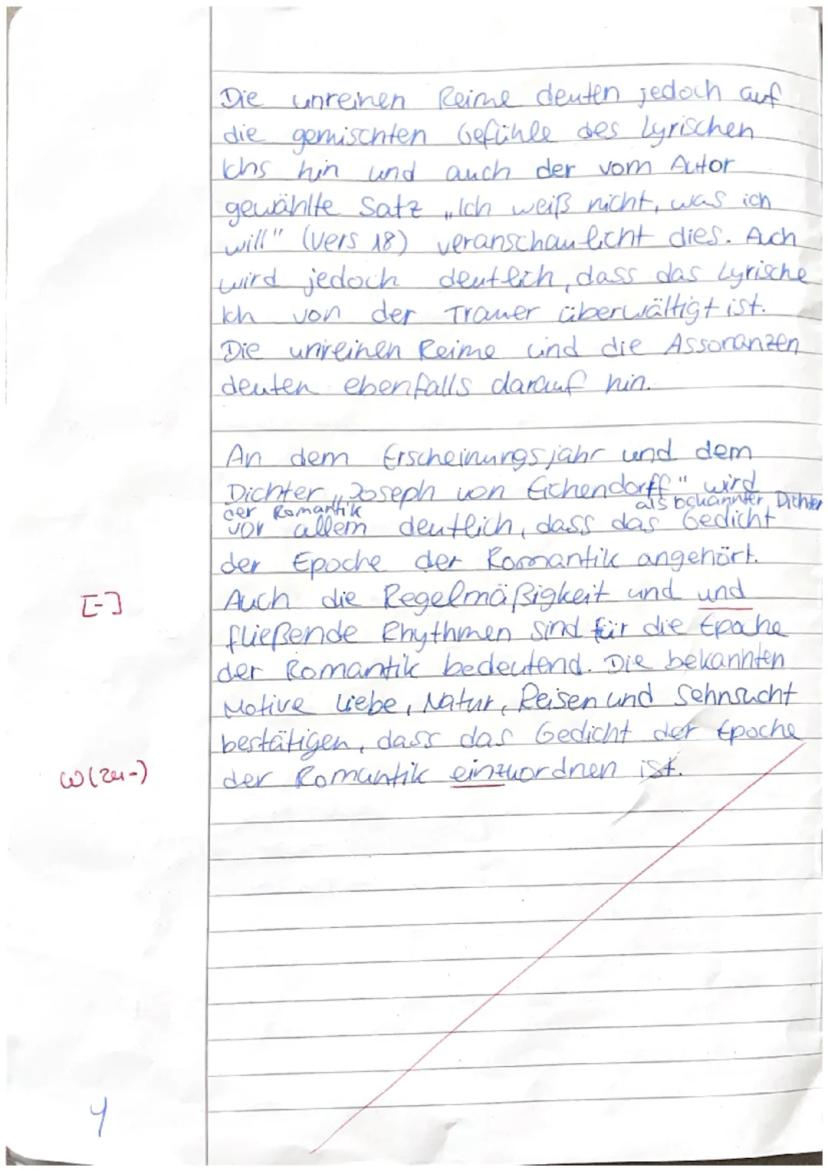 Die unreinen Reime deuten jedoch auf
die gemischten Gefühle des Lyrischen
Ichs hin und auch der vom Autor
gewählte Satz „Ich weiß nicht, was ich
will" (Vers 18) veranschaulicht dies. Auch
wird jedoch deutlich, dass das Lyrische
Ich von der Trauer überwältigt ist.
Die unreinen Reime und die Assonanzen
deuten ebenfalls darauf hin.
An dem Erscheinungsjahr und dem
Dichter „Joseph von Eichendorff" wird
der Romantik als bekannter Dichter
vor allem deutlich, dass das Gedicht
der Epoche der Romantik angehört.
[-] Auch die Regelmäßigkeit und und
fließende Rhythmen sind für die Epoche
der Romantik bedeutend. Die bekannten
Motive Liebe, Natur, Reisen und Sehnsucht
bestätigen, dass das Gedicht der Epoche
W (zu-) der Romantik einzuordnen ist.
4